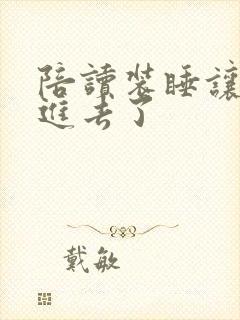 陪讀裝睡讓
進去了
戴敏